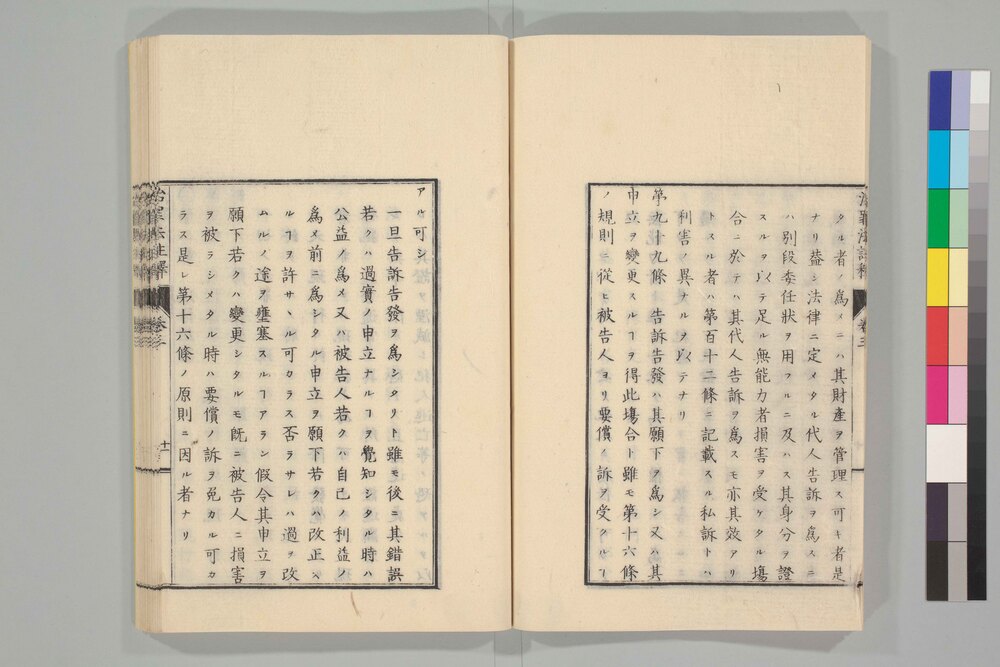 タル者ノ爲メニハ其財産ヲ管理ス可キ者是
ナリ葢シ法律ニ定メタル代人告訴ヲ爲スニ
ハ別段委任狀ヲ用フルニ及ハス其身分ヲ證
スルヲ以テ足ル無能力者損害ヲ受ケタル塲
合ニ於テハ其代人告訴ヲ爲スモ亦其效アリ
トスル者ハ第百十二條ニ記載スル私訴トハ
利害ノ異ナルヲ以テナリ
第九十九條 告訴告發ハ其願下ヲ爲シ又ハ其
申立ヲ變更スルヿヲ得此塲合ト雖モ第十六條
ノ規則ニ從ヒ被告人ヨリ要償ノ訴ヲ受クルヿ
アル可シ
一旦告訴告發ヲ爲シタリト雖モ後ニ其錯誤
若クハ過實ノ申立ナルヿヲ覺知シタル時ハ
公益ノ爲メ又ハ被告人若クハ自己ノ利益ノ
爲メ前ニ爲シタル申立ヲ願下若クハ改正ス
ルヿヲ許サヽル可カラス否ラサレハ過ヲ改
ムルノ途ヲ壅塞スルヿアラン假令其申立ヲ
願下若クハ變更シタルモ既ニ被告人ニ損害
ヲ被ラシメタル時ハ要償ノ訴ヲ免カル可カ
ラス是レ第十六條ノ原則ニ因ル者ナリ
治罪法註釋 卷三 十一